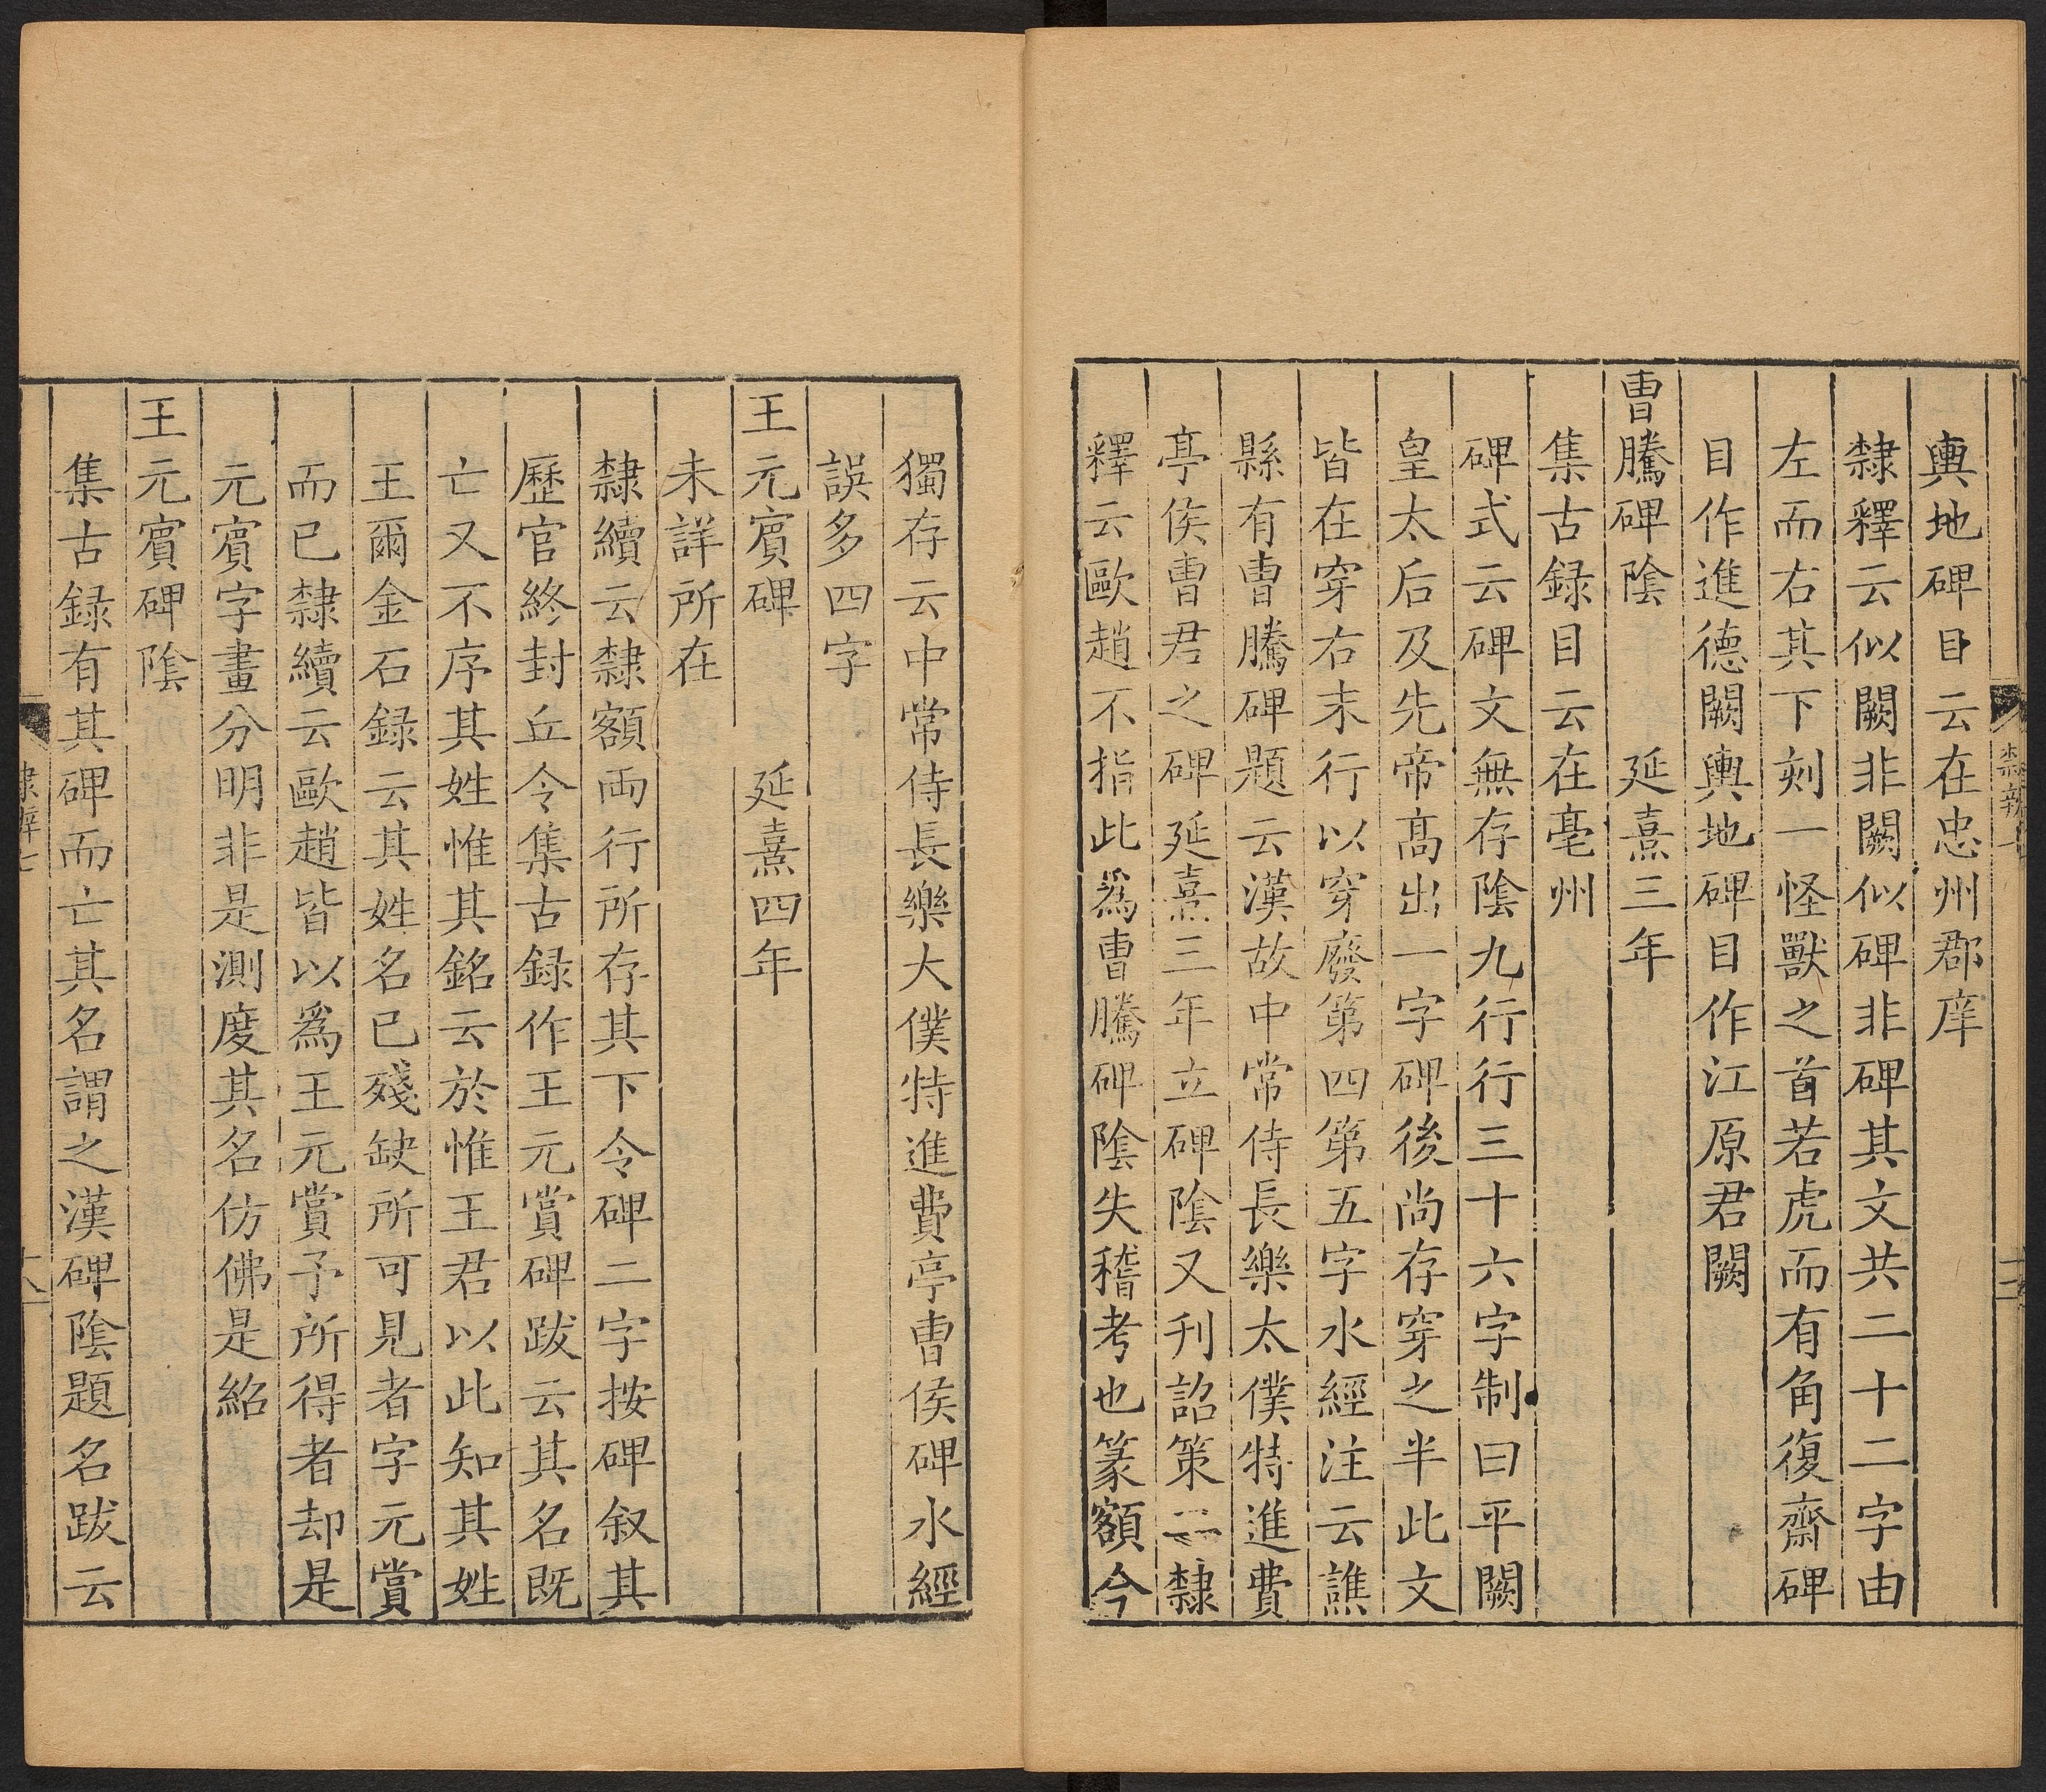 輿地碑目云在忠州郡庠
隸釋云似闕非闕似碑非碑其文共二十二字由
左而右其下刻一怪獸之首若虎而有角復齋碑
目作進德闕輿地碑目作江原君闕
曹騰碑陰 延熹三年
集古録目云在亳州
碑式云碑文無存陰九行行三十六字制曰平闕
皇太后及先帝髙出一字碑後尚存穿之半此文
皆在穿右末行以穿廢第四第五字水經注云譙
縣有曹騰碑題云漢故中常侍長樂太僕特進費
亭侯曹君之碑延熹三年立碑陰又刋詔策二隸
釋云歐趙不指此爲曹騰碑陰失稽考也篆額今
獨存云中常侍長樂大僕特進費亭曹侯碑水經
誤多四字
王元賔碑 延熹四年
未詳所在
隸續云隸額兩行所存其下令碑二字按碑叙其
歷官終封丘令集古録作王元賞碑跋云其名既
亡又不序其姓惟其銘云於惟王君以此知其姓
王爾金石録云其姓名已殘缺所可見者字元賞
而已隸續云歐趙皆以爲王元賞予所得者却是
元賔字畫分明非是測度其名仿佛是紹
王元賔碑陰
集古録有其碑而亡其名謂之漢碑陰題名跋云
隸辨七